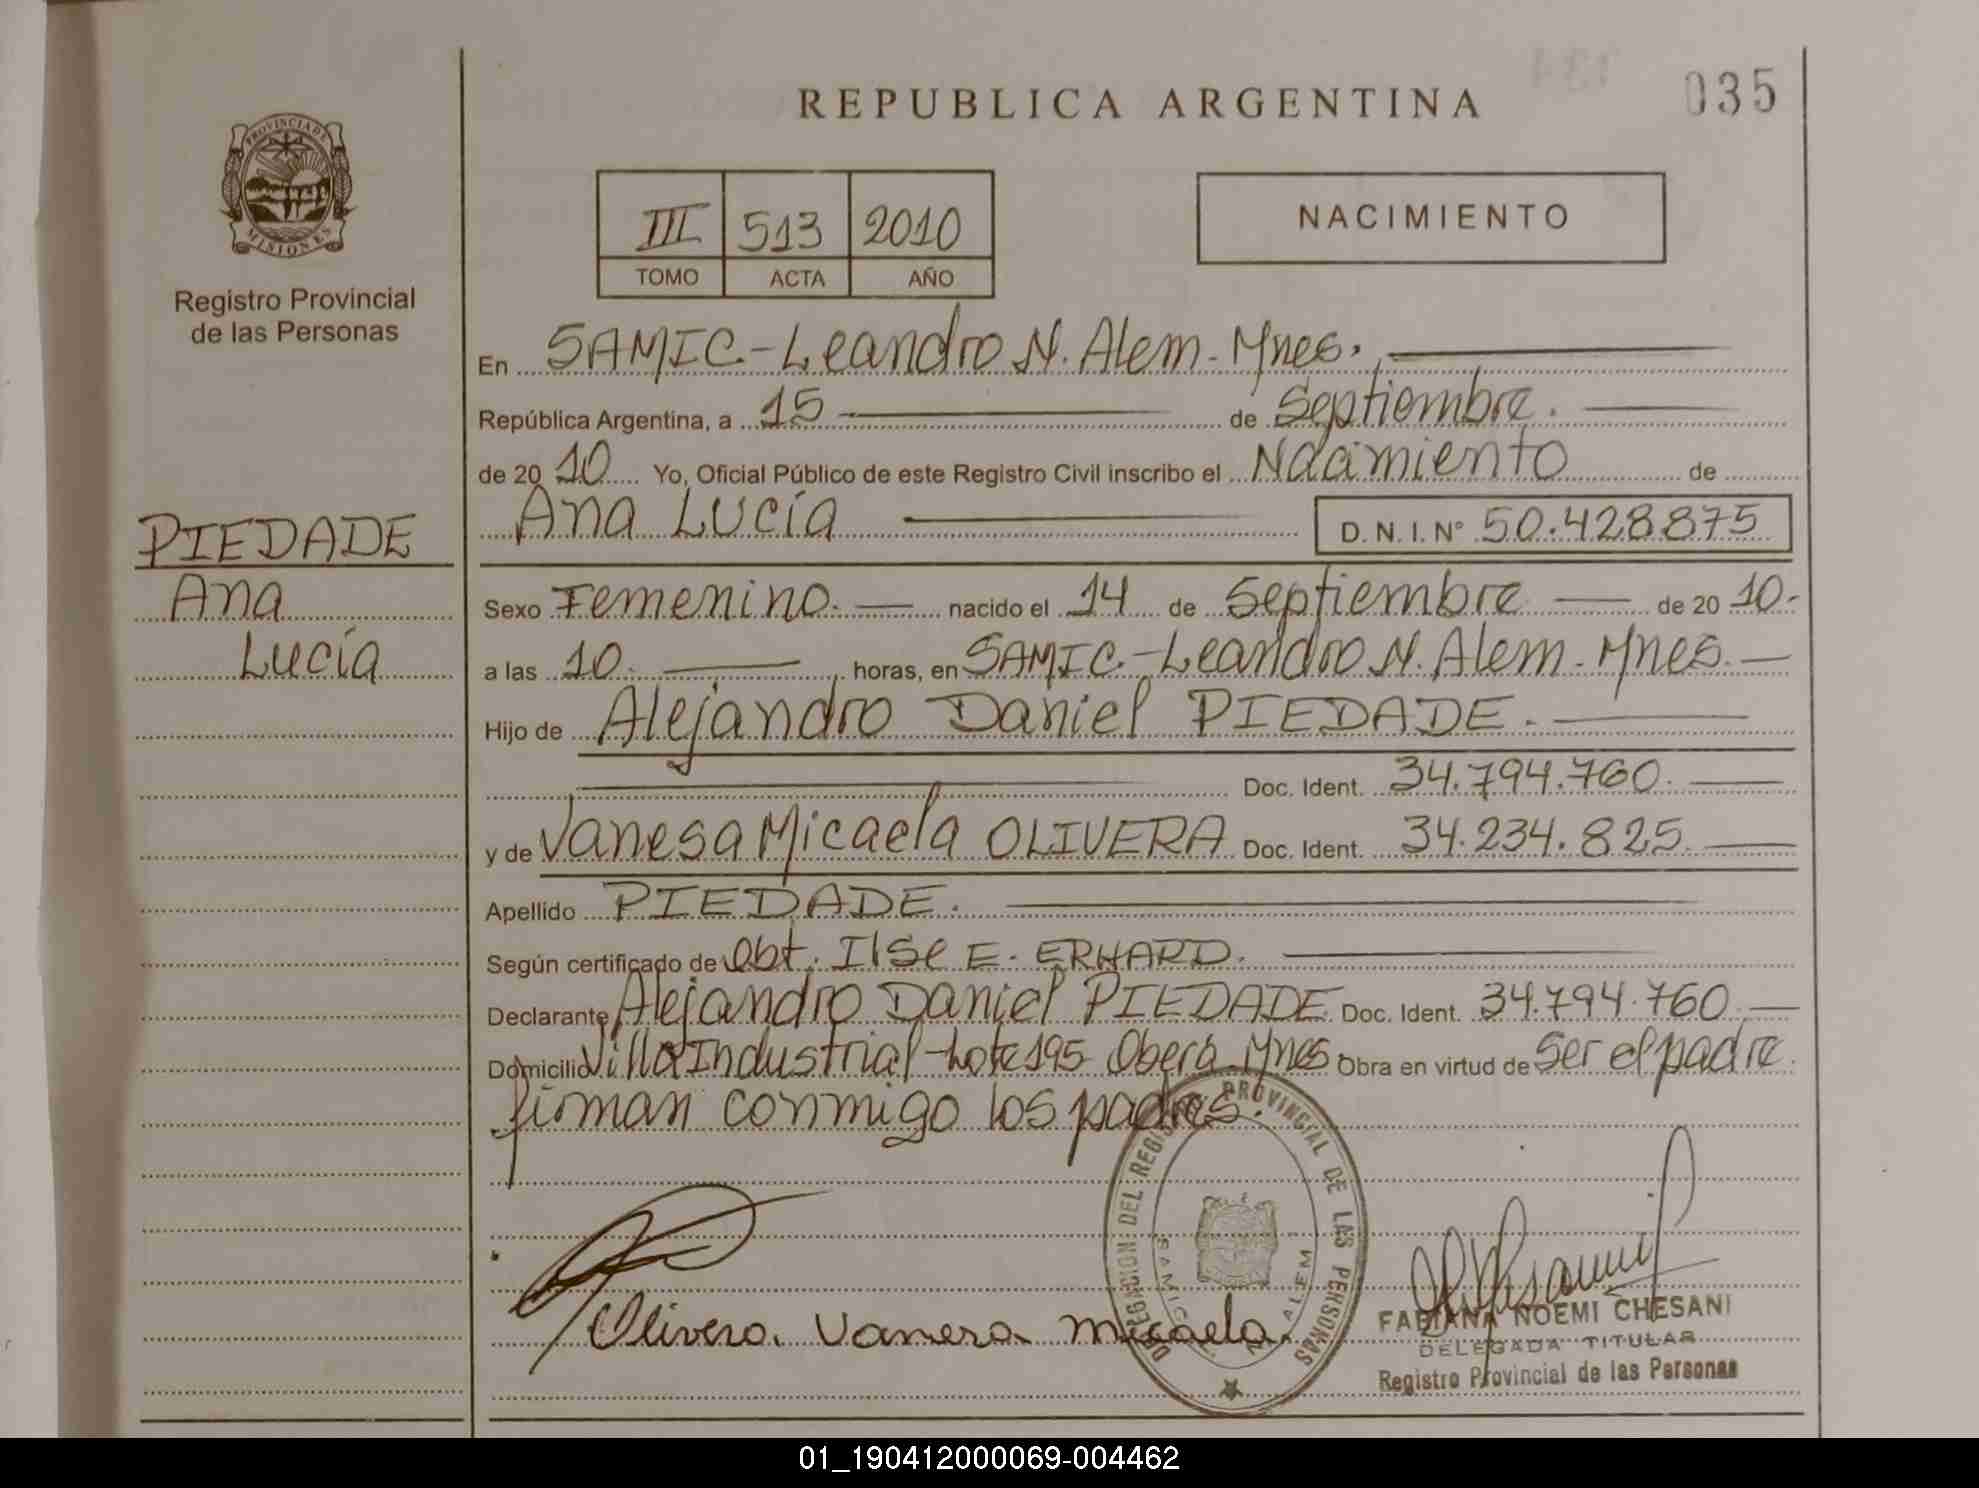 REPUBLICA ARGENTINA
035
PROVINCIA DE MISIONES
Registro Provincial
de las Personas
III 513 2010
TOMO ACTA AÑO
NACIMIENTO
En SAMIC-Leandro N. Alem-Mnes.
República Argentina, a 15 de Septiembre.
de 2010 Yo, Oficial Público de este Registro Civil inscribo el Nacimiento de
Ana Lucía D.N.I.Nº 50.428.875
PIEDADE
Ana
Lucía
Sexo Femenino. nacido el 14 de Septiembre de 2010.
a las 10. horas, en SAMIC-Leandro N. Alem-Mnes.
Hijo de Alejandro Daniel PIEDADE.
Doc. Ident. 34.794.760.
y de Vanesa Micaela OLIVERA Doc. Ident. 34.234.825.
Apellido PIEDADE.
Según certificado de Obt. Ilse E. ERHARD.
Declarante Alejandro Daniel PIEDADE Doc. Ident. 34.794.760.
Domicilio Villa Industrial-Lote 195 Oberá-Mnes. Obra en virtud de Ser el padre.
firman conmigo los padres.
DELEGACION DEL REGISTRO PROVINCIAL DE LAS PERSONAS
SAMIC ALEM
Olivera Vanesa Micaela.
FABIANA NOEMI CHESANI
DELEGADA TITULAR
Registro Provincial de las Personas
01_190412000069-004462